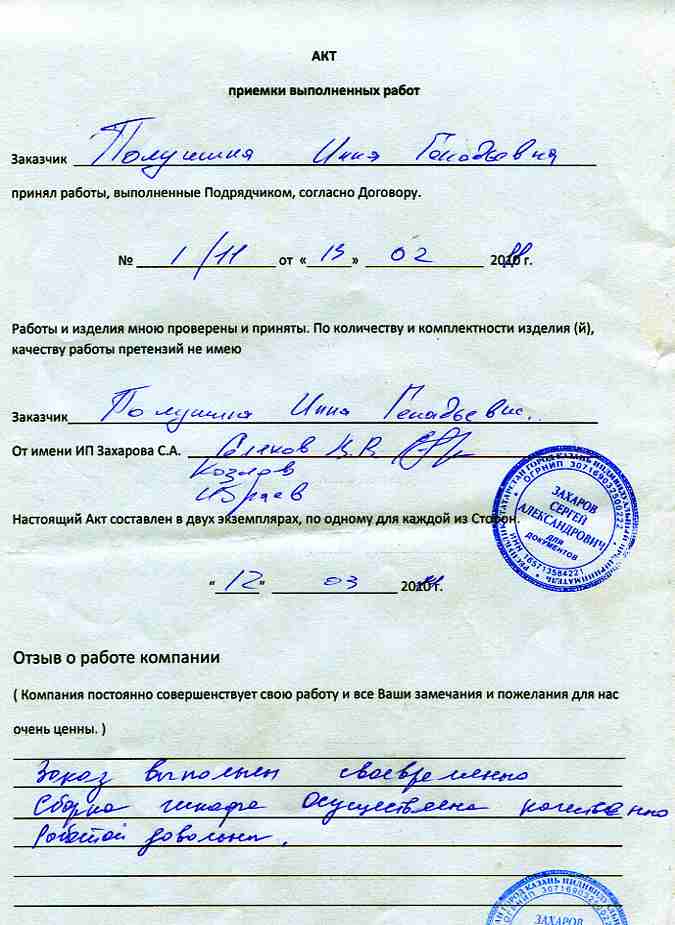 АКТ
приемки выполненных работ
Заказчик Полушина Инна Генадьевна
принял работы, выполненные Подрядчиком, согласно Договору.
№ 1/11 от «13» 02 2011 г.
Работы и изделия мною проверены и приняты. По количеству и комплектности изделия (й),
качеству работы претензий не имею
Заказчик Полушина Инна Генадьевн..
От имени ИП Захарова С.А. В.В.
Козлов
Настоящий Акт составлен в двух экземплярах, по одному для каждой из Сторон.
"12" 03 2011 г.
РЕСПУБЛИКА ТАТАРСТАН ГОРОД КАЗАНЬ ИНДИВИДУАЛЬНЫЙ ПРЕДПРИНИМАТЕЛЬ
ОГРНИП 307169032300222
ЗАХАРОВ
СЕРГЕЙ
АЛЕКСАНДРОВИЧ
ДЛЯ
ДОКУМЕНТОВ
ИНН 165713584221
Отзыв о работе компании
( Компания постоянно совершенствует свою работу и все Ваши замечания и пожелания для нас
очень ценны. )
Заказ выполнен своевременно
Сборка шкафа осуществлена качественно
Работой довольны.
ГОРОД КАЗАНЬ ИНДИВИДУАЛЬ
ОГРНИП
ЗАХАРОВ